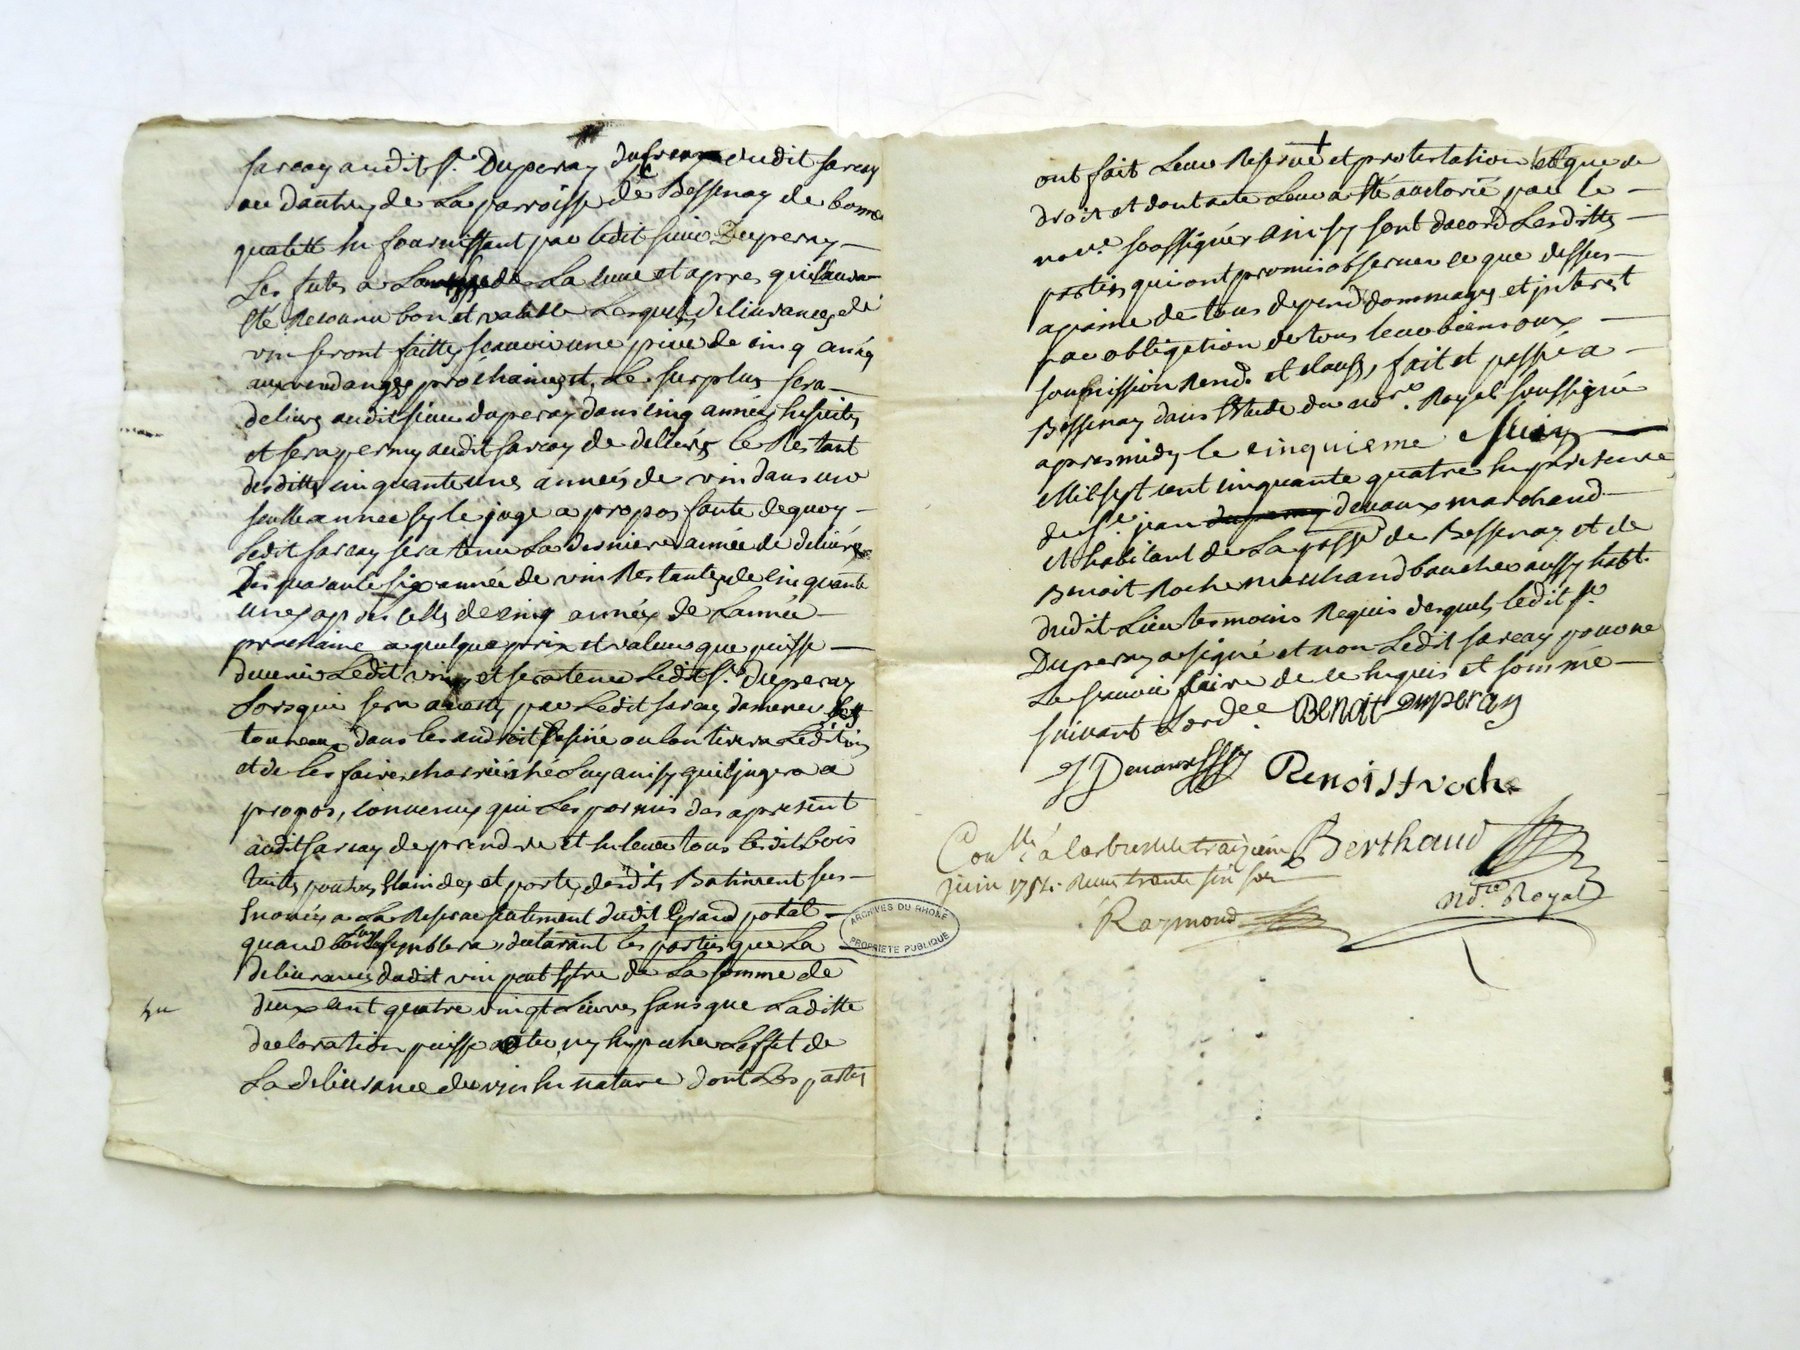 Sarcay audit Sr. Duperay du creux dudit Sarcay
ou dautres de La parroisse de Bessenay de bonne
qualitté lui fournissant par ledit sieur Duperay
Les futes a La Cuve et apres quil aura
été Reconnu bon et valable Lesquels delivrances de
vin seront faittes scavoir une piece de cinq anées
aux vendanges prochaines et Le surplus sera
delivré audit sieur duperay dans cinq années
et sera permis audit Sarcay de delivrer le Restant
desdittes cinquante unes années de vin dans une
seulle annee sy le juge a propos faute dequoy
Ledit Sarcay sera tenu La derniere année de delivrer
Les quarante six année de vin Restantes de cinquante
unes apres celles de cinq années de Lannée
prochaine a quelque prix et valeur que puisse
devenir Ledit vin et sera tenu Ledit Sr. duperay
Lorsquil sera averty par Ledit Sarcay damener
toneaux dans les endroit ou lon tirera Ledit vin
et de les faire charrier ché Luy ainsy quil jugera a
propos, convenus qui Les parmis des apresent
audit Sarcay de prendre et enlever tous lesdit bois
tuilles et portes desdits Batiment sus
énoncés a La Reserve seulement dudit Grand portal
quand bon luy semblera, declarant les parties que La
delivrance dudit vin peut estre de La somme de
deux cent quatre vingt Livres sans que Laditte
declaration puisse ny empecher Leffet de
La delivrance du vin en nature dont Les parties
ont fait Leur Reserve et protestation
droit et dont acte Leur a été octorié par le
nore. soussigné ainsy sont dacord Lesdittes
parties qui ont promis observer ce que dessus
a paine de tous depend dommages et interest
par obligation de tous leur biens
soumission Rend. et clauses, fait et passé a
Bessenay dans Létude du nore. Royal soussigné
apres midy le cinquieme Juin
Mil sept cent cinquante quatre en presence
de Sr. jean devaux marchand
et habitant de La poisse de Bessenay et de
Benoit Roche marchand boucher aussy habt.
dudit Lieu temoins Requis desquels ledit Sr.
Duperay a signé et non Ledit Sarcay pour ne
Le scavoir faire de ce enquis et sommé
suivant Lord.ce Benoit duperay
J Devaux Benoist roche
Con.llé à Larbresle le traizieme Berthaud
juin 1754. Recu trente six sols
Raymond nore. Royal
ARCHIVES DU RHONE
PROPRIETE PUBLIQUE